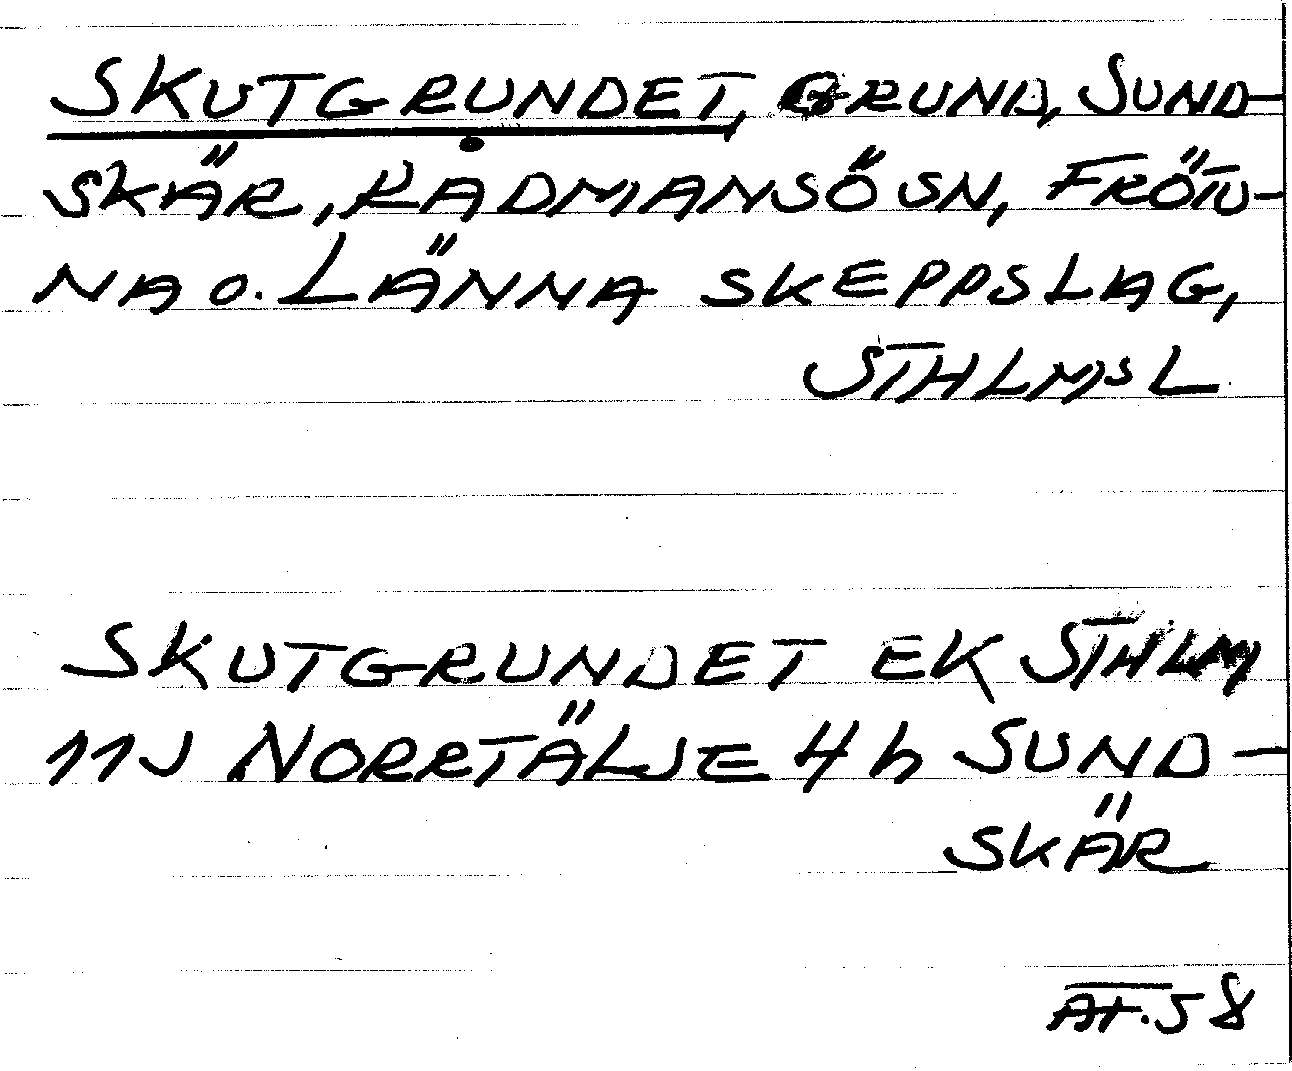 SKUTGRUNDET, GRUND, SUND-
SKÄR, RÅDMANSÖ SN, FRÖTU-
NA O. LÄNNA SKEPPSLAG,
STHLMS L
SKUTGRUNDET EK STHLM
11J NORRTÄLJE 4h SUND-
SKÄR
AT.58